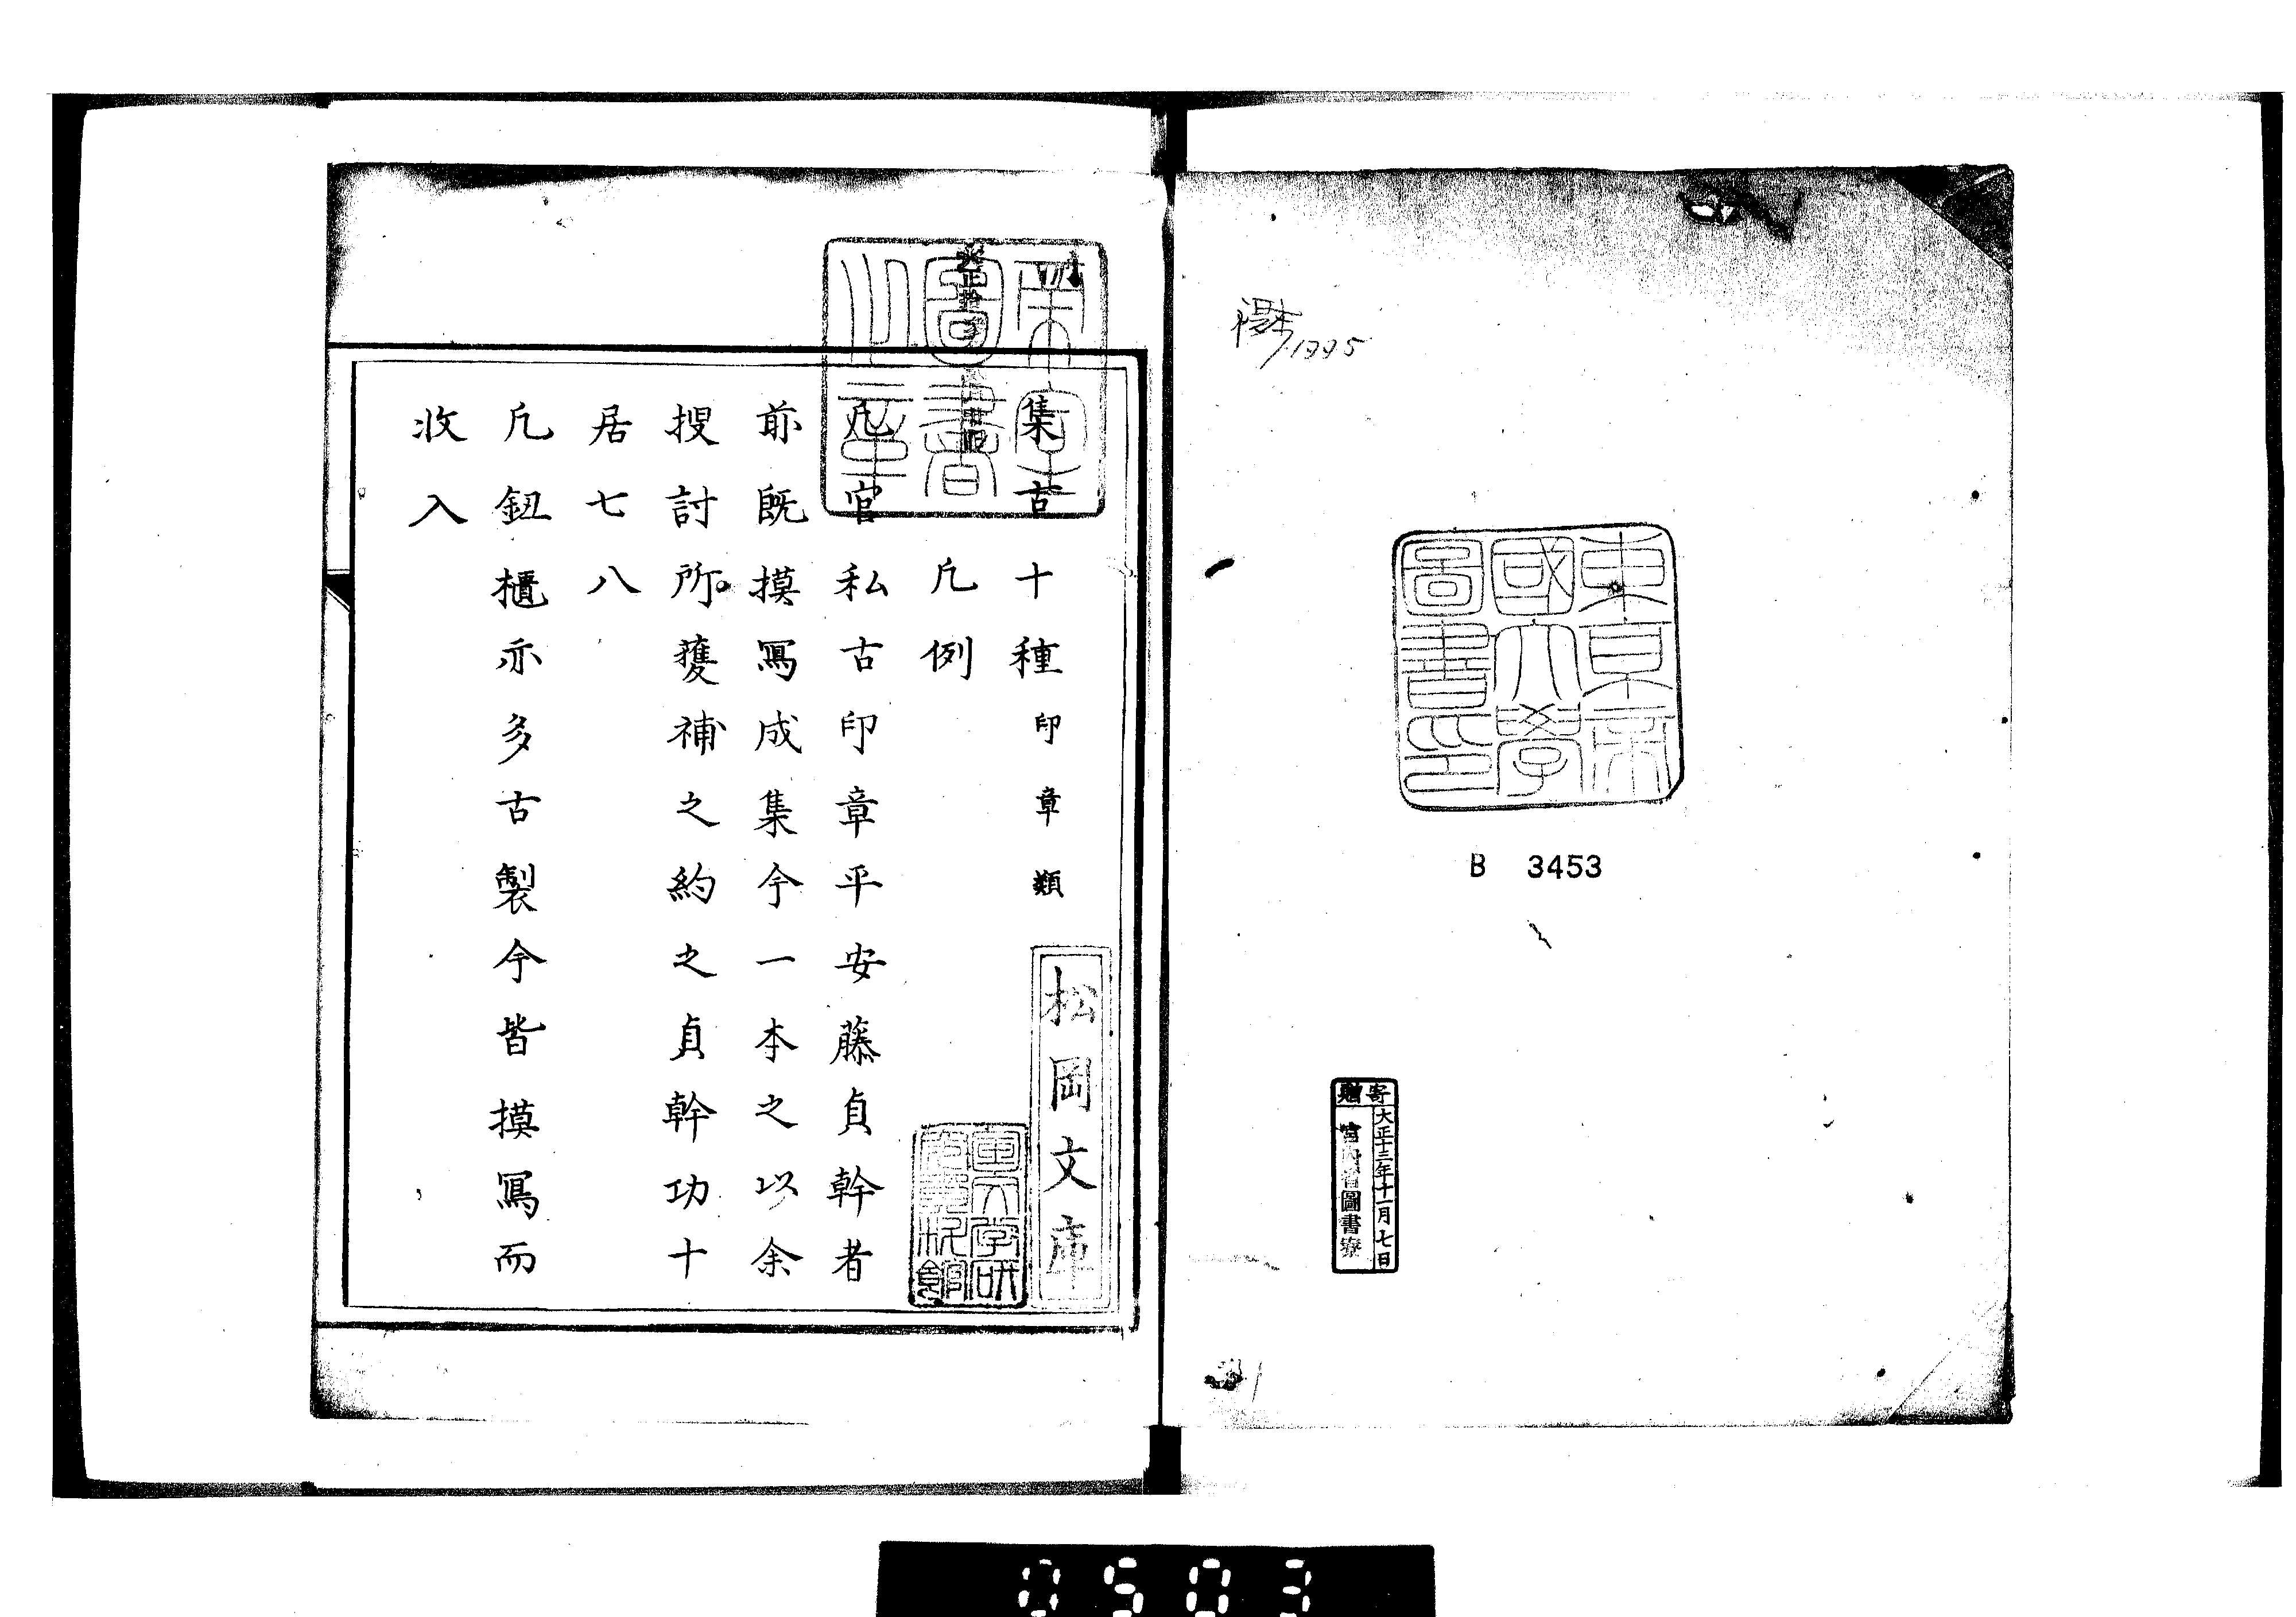 1995
東京帝
國大學
圖書印
B 3453
寄贈
大正十三年十一月七日
宮內省圖書寮
帝室
圖書
之章
集古十種印章類
松岡文庫
凡例
凡官私古印章平安藤貞幹者
前既摸寫成集今一本之以余
搜討所獲補之約之貞幹功十
居七八
凡鈕櫃亦多古製今皆摸寫而
收入
0503